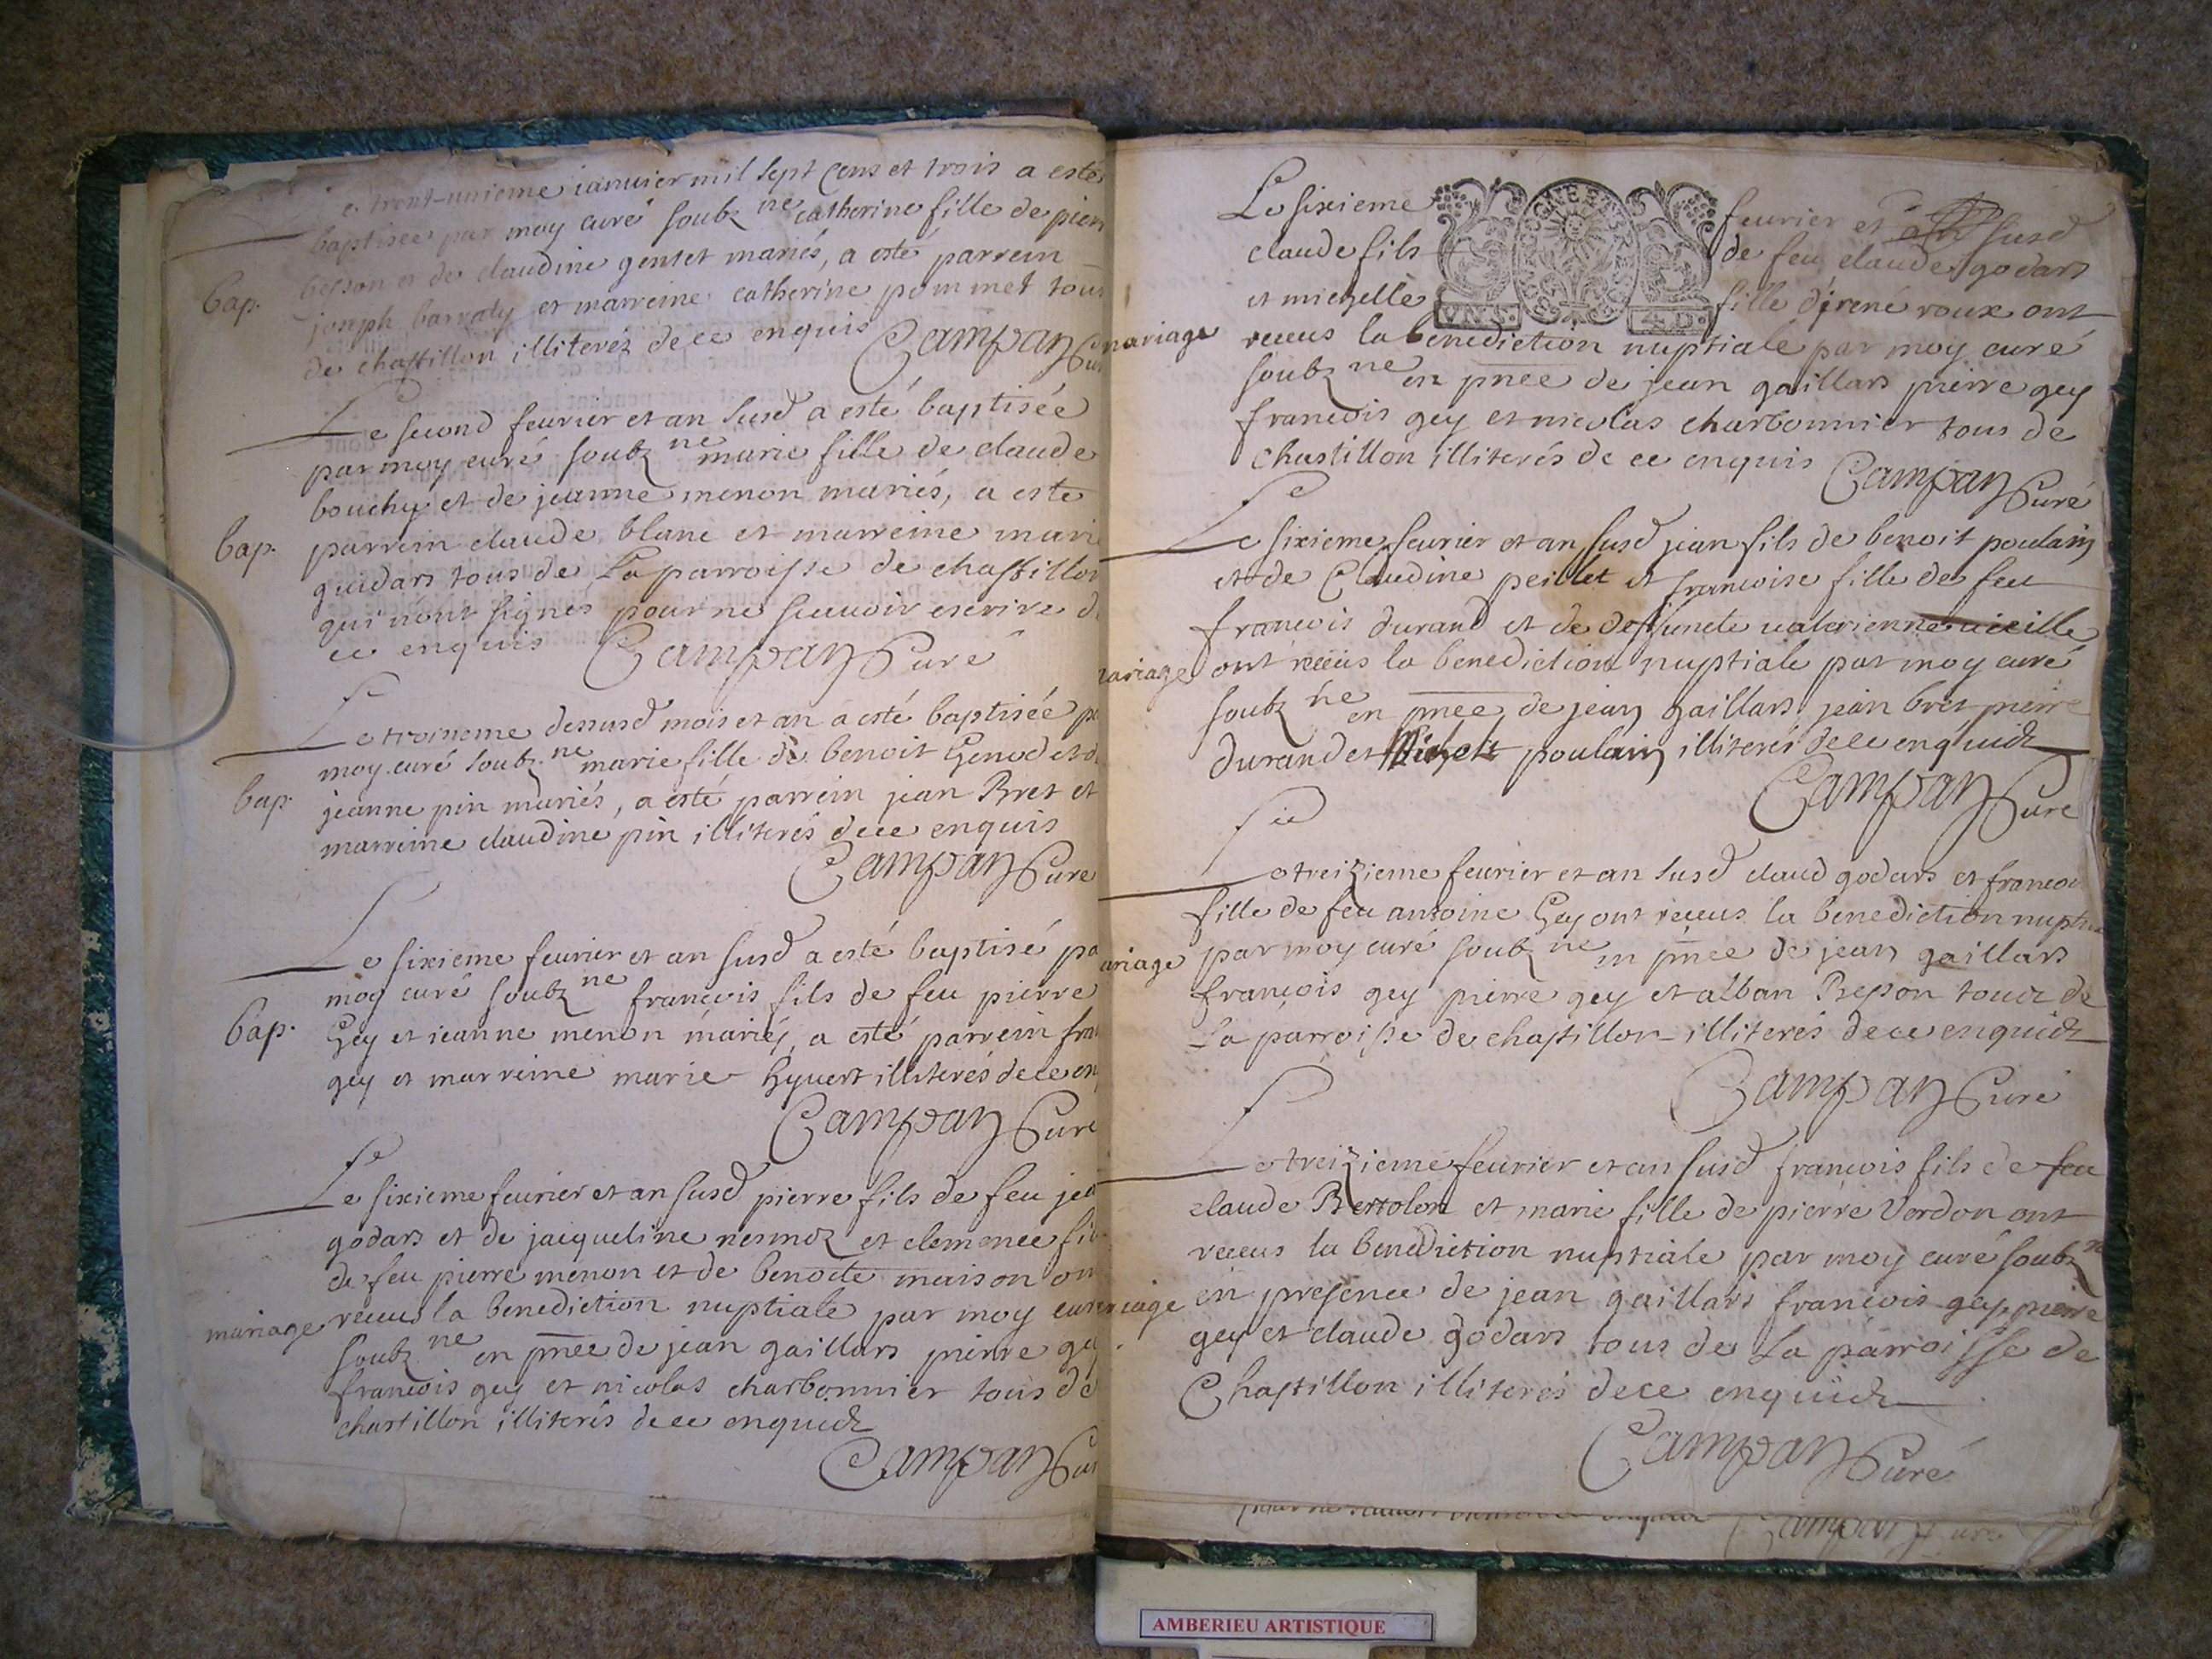 e trent-unieme ianuier mil sept cens et trois a esté
baptisée par moy curé soubz ne catherine fille de pierr
besson et de claudine gentet mariés, a esté parrein
bap.
joseph barraly et marreine catherine pommet tous
de chastillon illiterés de ce enquis Campan Cur
Le second feurier et an susd a esté baptisée
par moy curé soubz ne marie fille de claude
bouchy et de jeanne menon mariés, a este
bap. parrein claude blanc et marreine mari
guidars tous de La parroisse de chastillon
qui n'ont signes pour ne scauoir escrire d
ce enquis Campan Curé
Le troisieme dessusd mois et an a esté baptisée p
moy curé soubz ne marie fille de benoit Genod et d
bap. jeanne pin mariés, a esté parrein jean Bret et
marreine claudine pin illiterés de ce enquis
Campan Cure
Le sixieme feurier et an susd a esté baptisé pa
moy curé soubz ne francois fils de feu pierre
bap. Gey et jeanne menon mariés, a esté parrein fra
gey et marreine marie hyuert illiterés de ce en
Campan Cure
Le sixieme feurier et an susd pierre fils de feu jea
godars et de jacqueline nesmoz et clemence fil
de feu pierre menon et de benoite maison on
mariage receus la benediction nuptiale par moy cure
soubz ne en pnce de jean gaillars pierre gey
francois gey et nicolas charbonnier tous de
chastillon illiterés de ce enquidz
Campan Cur
Le sixieme feurier et an susd
claude fils de feu claude godars
et michelle fille d'irené roux ont
VN S. 4. D.
mariage receus la benediction nuptiale par moy curé
soubz ne en pnce de jean gaillars pierre gey
francois gey et nicolas charbonnier tous de
Chastillon illiterés de ce enquis Campan Curé
Le sixieme feurier et an susd jean fils de benoit poulain
et de Claudine peillet et francoise fille de feu
francois durand et de deffuncte ualerienne uieille
ariage ont receus la benediction nuptiale par moy curé
soubz ne en pnce de jean gaillars jean bret pierre
durand et poulain illiterés de ce enquidz
Campan Cure
Le treizieme feurier et an susd claud godars et francoi
fille de feu antoine Gey ont receus la benediction nuptia
ariage par moy curé soubz ne en pnce de jean gaillars
francois gey pierre gey et alban Besson tous de
La parroisse de chastillon illiterés de ce enquidz
Campan Curé
Le treizieme feurier et an susd francois fils de feu
claude Bertolon et marie fille de pierre Verdon ont
receus la benediction nuptiale par moy curé soubz ne
riage en presence de jean gaillars francois gey pierre
gey et claude godars tous de La parroisse de
Chastillon illiterés de ce enquidz
Campan Curé
Campan Cure
AMBERIEU ARTISTIQUE